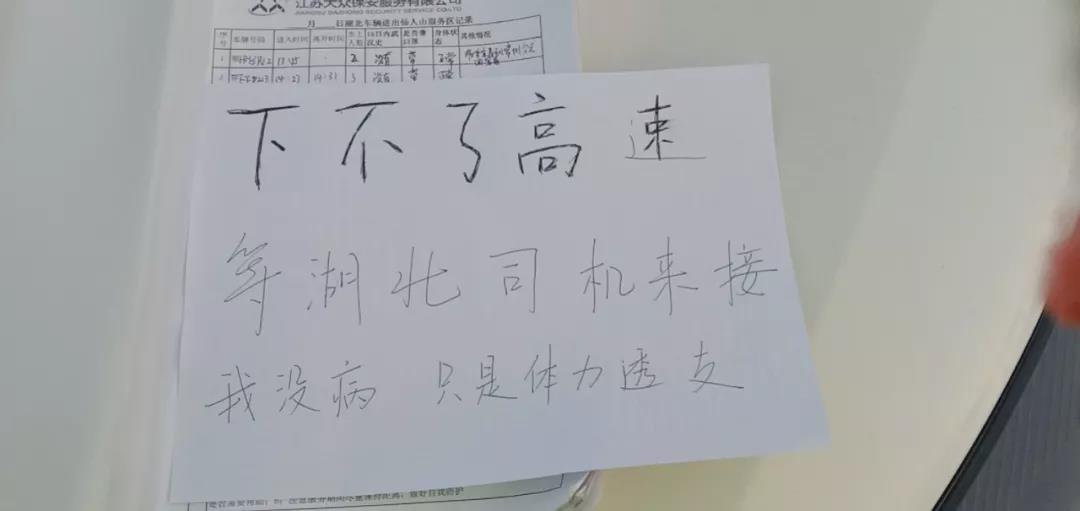 江苏大众保安服务有限公司
JIANGSU DAZHONG SECURITY SERVICE CO.LTD
月 日湖北车辆进出仙人山服务区记录
序号 车牌号码 进入时间 离开时间 车上人数 14日内武汉史 是否像以部 身体状态 其他情况
1 13:45 2 没有
2 14:23 14:31 3 没有
下不了高速
等湖北司机来接
我没病 只是体力透支
服务期间尽量保持距离,做好自我防护